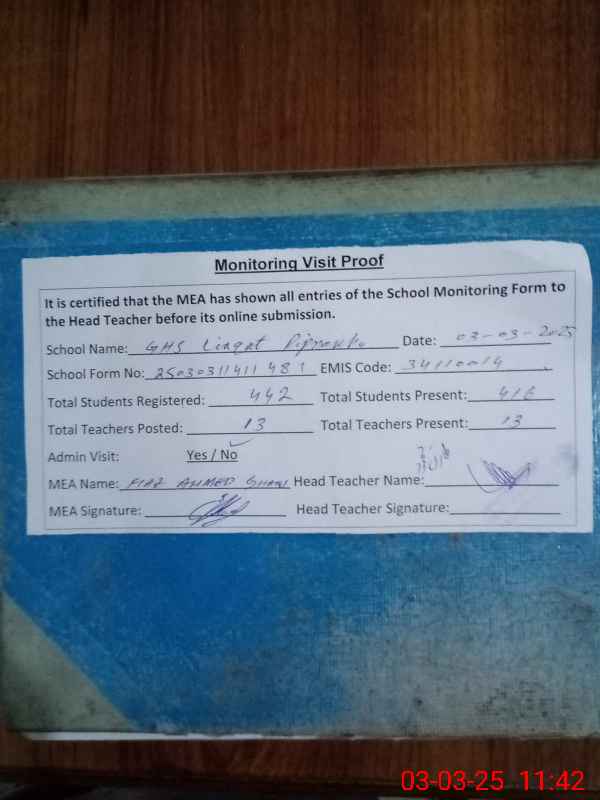 Monitoring Visit Proof
It is certified that the MEA has shown all entries of the School Monitoring Form to
the Head Teacher before its online submission.
School Name: GHS Liaqat Date: 03-03-2025
School Form No: 25030311411481 EMIS Code: 34110014
Total Students Registered: 442 Total Students Present: 416
Total Teachers Posted: 13 Total Teachers Present: 13
Admin Visit: Yes / No
MEA Name: FIAZ AHMED Head Teacher Name:
MEA Signature: Head Teacher Signature:
03-03-25 11:42